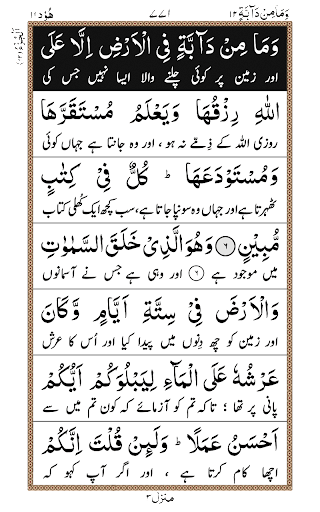 وَمَا مِنْ دَآبَّةٍ ١٢
٧٧١
هُوْد ١١
وَمَا مِنْ دَآبَّةٍ فِى الْاَرْضِ اِلَّا عَلَى
اور زمین پر کوئی چلنے والا ایسا نہیں جس کی
اللّٰهِ رِزْقُهَا وَيَعْلَمُ مُسْتَقَرَّهَا
روزی اللہ کے ذمّے نہ ہو ، اور وہ جانتا ہے جہاں کوئی
وَمُسْتَوْدَعَهَا ؕ كُلٌّ فِىْ كِتٰبٍ
ٹھہرتا ہے اور جہاں وہ سونپا جاتا ہے، سب کچھ ایک کُھلی کتاب
مُّبِيْنٍ ۞٦ وَهُوَ الَّذِىْ خَلَقَ السَّمٰوٰتِ
میں موجود ہے ۞٦ اور وہی ہے جس نے آسمانوں
وَالْاَرْضَ فِىْ سِتَّةِ اَيَّامٍ وَّكَانَ
اور زمین کو چھ دِنوں میں پیدا کیا اور اُس کا عرش
عَرْشُهٗ عَلَى الْمَآءِ لِيَبْلُوَكُمْ اَيُّكُمْ
پانی پر تھا ؛ تاکہ تم کو آزمائے کہ کون تم میں سے
اَحْسَنُ عَمَلًا ؕ وَلَئِنْ قُلْتَ اِنَّكُمْ
اچھا کام کرتا ہے ، اور اگر آپ کہو کہ
منزل ٣